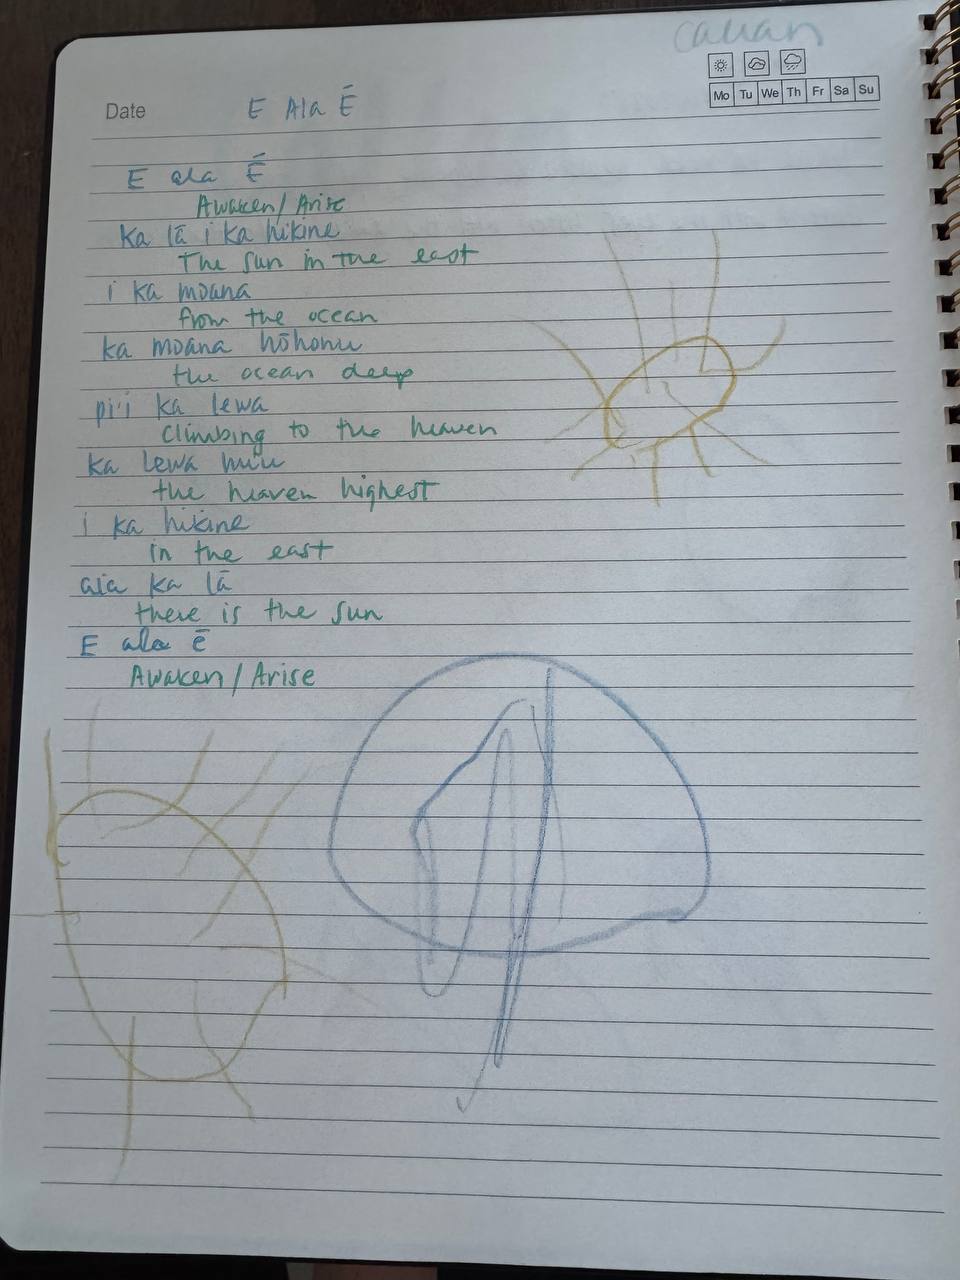 Date
E Ala Ē
Mo Tu We Th Fr Sa Su
E ala Ē
Awaken/Arise
ka lā i ka hikine
The sun in the east
i ka moana
from the ocean
ka moana hōhonu
the ocean deep
pi'i ka lewa
climbing to the heaven
ka lewa nu'u
the heaven highest
i ka hikine
in the east
aia ka lā
there is the sun
E ala ē
Awaken/Arise